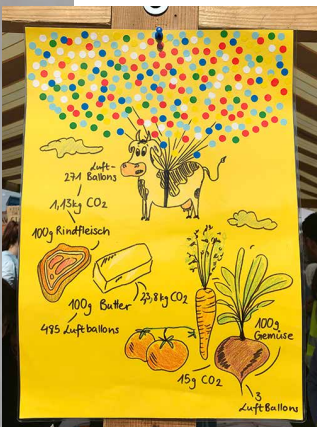 271 Luft-
Ballons
1,13kg CO₂
100g Rindfleisch
100g Butter
23,8kg CO₂
485 Luftballons
15g CO₂
100g
Gemüse
3
LuftBallons